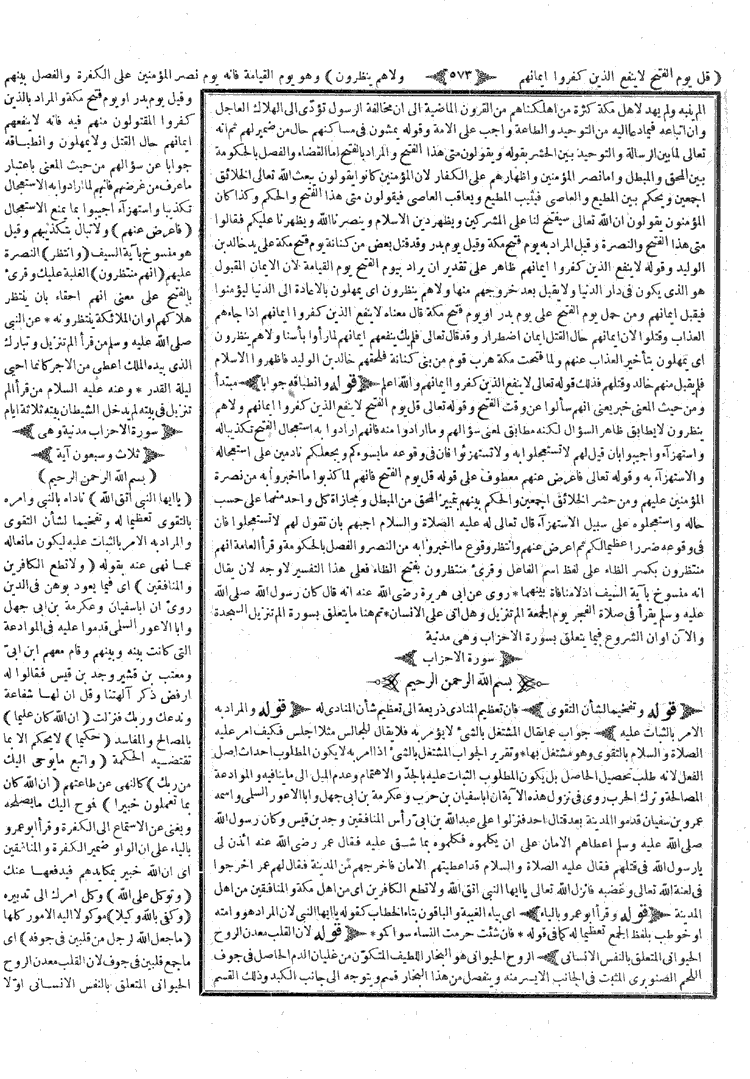 ( قل يوم الفتح لا ينفع الذين كفروا ايمانهم ٥٧٣ ولاهم ينظرون ) وهو يوم القيامة فانه يوم نصر المؤمنين على الكفرة والفصل بينهم
المرينبه ولم يهد لاهل مكة كثرة من اهلكناهم من القرون الماضية الى ان مخالفة الرسول تؤدى الى الهلاك العاجل
وان اتباعه فيما دعا اليه من التوحيد والطاعة واجب على الامة وقوله يمشون فى مساكنهم حال من ضمير لهم ثم انه
تعالى لما بين الرسالة والتوحيد بين الحشر بقوله ويقولون متى هذا الفتح والمراد بالفتح اما القضاء والفصل بالحكومة
بين المحق والمبطل واما نصر المؤمنين واظهارهم على الكفار لان المؤمنين كانوا يقولون يبعث الله تعالى الخلائق
اجمعين ويحكم بين المطيع والعاصى فيثيب المطيع ويعاقب العاصى فيقولون متى هذا الفتح والحكم وكذا كان
المؤمنون يقولون ان الله تعالى سيفتح لنا على المشركين ويظهر دين الاسلام وينصرنا الله ويظهرنا عليكم فقالوا
متى هذا الفتح والنصرة وقيل المراد به يوم فتح مكة وقيل يوم بدر وقد قتل بعض من كنانة يوم فتح مكة على يد خالد بن
الوليد وقوله لا ينفع الذين كفروا ايمانهم ظاهر على تقدير ان يراد بيوم الفتح يوم القيامة لان الايمان المقبول
هو الذى يكون فى دار الدنيا ولا يقبل بعد خروجهم منها ولاهم ينظرون اى يمهلون بالاعادة الى الدنيا ليؤمنوا
فيقبل ايمانهم ومن حمل يوم الفتح على يوم بدر او يوم فتح مكة قال معناه لا ينفع الذين كفروا ايمانهم اذا جاءهم
العذاب وقتلوا لان ايمانهم حال القتل ايمان اضطرار وقد قال تعالى فلم يك ينفعهم ايمانهم لما رأوا بأسنا ولاهم ينظرون
اى يمهلون بتأخير العذاب عنهم ولما فتحت مكة هرب قوم من بنى كنانة فلحقهم خالد بن الوليد فاظهروا الاسلام
فلم يقبل منهم خالد وقتلهم فذلك قوله تعالى لا ينفع الذين كفروا ايمانهم والله اعلم قوله وانطباقه جوابا مبتدأ
ومن حيث المعنى خبر يعنى انهم سألوا عن وقت الفتح وقوله تعالى قل يوم الفتح لا ينفع الذين كفروا ايمانهم ولاهم
ينظرون لا يطابق ظاهر السؤال لكنه مطابق لمعنى سؤالهم وما ارادوا منه فانهم ارادوا به استعجال الفتح تكذيبا له
واستهزآء واجيبوا بان قيل لهم لا تستعجلوا به ولا تستهزئوا فان فى وقوعه ما يسوءكم ويجعلكم نادمين على استعجاله
والاستهزآء به وقوله تعالى فاعرض عنهم معطوف على قوله قل يوم الفتح فانهم لما كذبوا ما اخبروا به من نصرة
المؤمنين عليهم ومن حشر الخلائق اجمعين والحكم بينهم بتمييز المحق من المبطل ومجازاة كل واحد منهما على حسب
حاله واستعجلوه على سبيل الاستهزآء قال تعالى له عليه الصلاة والسلام اجبهم بان تقول لهم لا تستعجلوا فان
فى وقوعه ضررا عظيما لكم ثم اعرض عنهم وانتظر وقوع ما اخبروا به من النصر والفصل بالحكومة وقرأ العامة انهم
منتظرون بكسر الظاء على لفظ اسم الفاعل وقرئ منتظرون بفتح الظاء فعلى هذا التفسير لا وجه لان يقال
انه منسوخ بآية السيف اذ لا منافاة بينهما * روى عن ابى هريرة رضى الله عنه انه قال كان رسول الله صلى الله
عليه وسلم يقرأ فى صلاة الفجر يوم الجمعة الم تنزيل وهل اتى على الانسان * تم هنا ما يتعلق بسورة الم تنزيل السجدة
والآن اوان الشروع فيما يتعلق بسورة الاحزاب وهى مدنية
سورة الاحزاب
بسم الله الرحمن الرحيم
قوله وتفخيما لشأن التقوى فان تعظيم المنادى ذريعة الى تعظيم شأن المنادى له قوله والمراد به
الامر بالثبات عليه جواب عما يقال المشتغل بالشئ لا يؤمر به فلا يقال للجالس مثلا اجلس فكيف امر عليه
الصلاة والسلام بالتقوى وهو مشتغل بها * وتقرير الجواب المشتغل بالشئ اذا امر به لا يكون المطلوب احداث اصل
الفعل لانه طلب تحصيل الحاصل بل يكون المطلوب الثبات عليه بالجد والاهتمام وعدم الميل الى ما ينافيه والموادعة
المصالحة وترك الحرب روى فى نزول هذه الآية ان ابا سفيان بن حرب وعكرمة بن ابى جهل وابا الاعور السلمى واسمه
عمرو بن سفيان قدموا المدينة بعد قتال احد فنزلوا على عبد الله بن ابى رأس المنافقين وجد بن قيس وكان رسول الله
صلى الله عليه وسلم اعطاهم الامان على ان يكلموه فكلموه بما شق عليه فقال عمر رضى الله عنه ائذن لى
يا رسول الله فى قتلهم فقال عليه الصلاة والسلام قد اعطيتهم الامان فاخرجهم من المدينة فقال لهم عمر اخرجوا
فى لعنة الله تعالى وغضبه فانزل الله تعالى يا ايها النبى اتق الله ولا تطع الكافرين اى من اهل مكة والمنافقين من اهل
المدينة قوله وقرأ ابو عمرو بالياء اى بياء الغيبة والباقون بتاء الخطاب كقوله يا ايها النبى لان المراد هو وامته
او خوطب بلفظ الجمع تعظيما له كما فى قوله * فان شئت حرمت النساء سواكم * قوله لان القلب معدن الروح
الحيوانى المتعلق بالنفس الانسانى الروح الحيوانى هو البخار اللطيف المتكون من غليان الدم الحاصل فى جوف
اللحم الصنوبرى المثبت فى الجانب الايسر منه وينفصل من هذا البخار قسم ويتوجه الى جانب الكبد وذلك القسم
وقيل يوم بدر او يوم فتح مكة والمراد بالذين
كفروا المقتولون منهم فيه فانه لا ينفعهم
ايمانهم حال القتل ولا يمهلون وانطباقه
جوابا عن سؤالهم من حيث المعنى باعتبار
ما عرف من غرضهم فانهم لما ارادوا به الاستعجال
تكذيبا واستهزآء اجيبوا بما يمنع الاستعجال
( فاعرض عنهم ) ولا تبال بتكذيبهم وقيل
هو منسوخ بآية السيف ( وانتظر ) النصرة
عليهم ( انهم منتظرون ) الغلبة عليك وقرئ
بالفتح على معنى انهم احقاء بان ينتظر
هلاكهم او ان الملائكة ينتظرونه * عن النبى
صلى الله عليه وسلم من قرأ الم تنزيل وتبارك
الذى بيده الملك اعطى من الاجر كانما احيى
ليلة القدر * وعنه عليه السلام من قرأ الم
تنزيل فى بيته لم يدخل الشيطان بيته ثلاثة ايام
سورة الاحزاب مدنية وهى
ثلاث وسبعون آية
( بسم الله الرحمن الرحيم )
( يا ايها النبى اتق الله ) ناداه بالنبى وامره
بالتقوى تعظيما له وتفخيما لشأن التقوى
والمراد به الامر بالثبات عليه ليكون مانعا له
عما نهى عنه بقوله ( ولا تطع الكافرين
والمنافقين ) اى فيما يعود بوهن فى الدين
روى ان ابا سفيان وعكرمة بن ابى جهل
وابا الاعور السلمى قدموا عليه فى الموادعة
التى كانت بينه وبينهم وقام معهم ابن ابى
ومعتب بن قشير وجد بن قيس فقالوا له
ارفض ذكر آلهتنا وقل ان لها شفاعة
وندعك وربك فنزلت ( ان الله كان عليما )
بالمصالح والمفاسد ( حكيما ) لا يحكم الا بما
تقتضيه الحكمة ( واتبع ما يوحى اليك
من ربك ) كالنهى عن طاعتهم ( ان الله كان
بما تعملون خبيرا ) فموح اليك ما يصلحه
ويغنى عن الاستماع الى الكفرة وقرأ ابو عمرو
بالياء على ان الواو ضمير الكفرة والمنافقين
اى ان الله خبير بمكايدهم فيدفعها عنك
( وتوكل على الله ) وكل امرك الى تدبيره
( وكفى بالله وكيلا ) موكولا اليه الامور كلها
( ما جعل الله لرجل من قلبين فى جوفه ) اى
ما جمع قلبين فى جوف لان القلب معدن الروح
الحيوانى المتعلق بالنفس الانسانى اولا